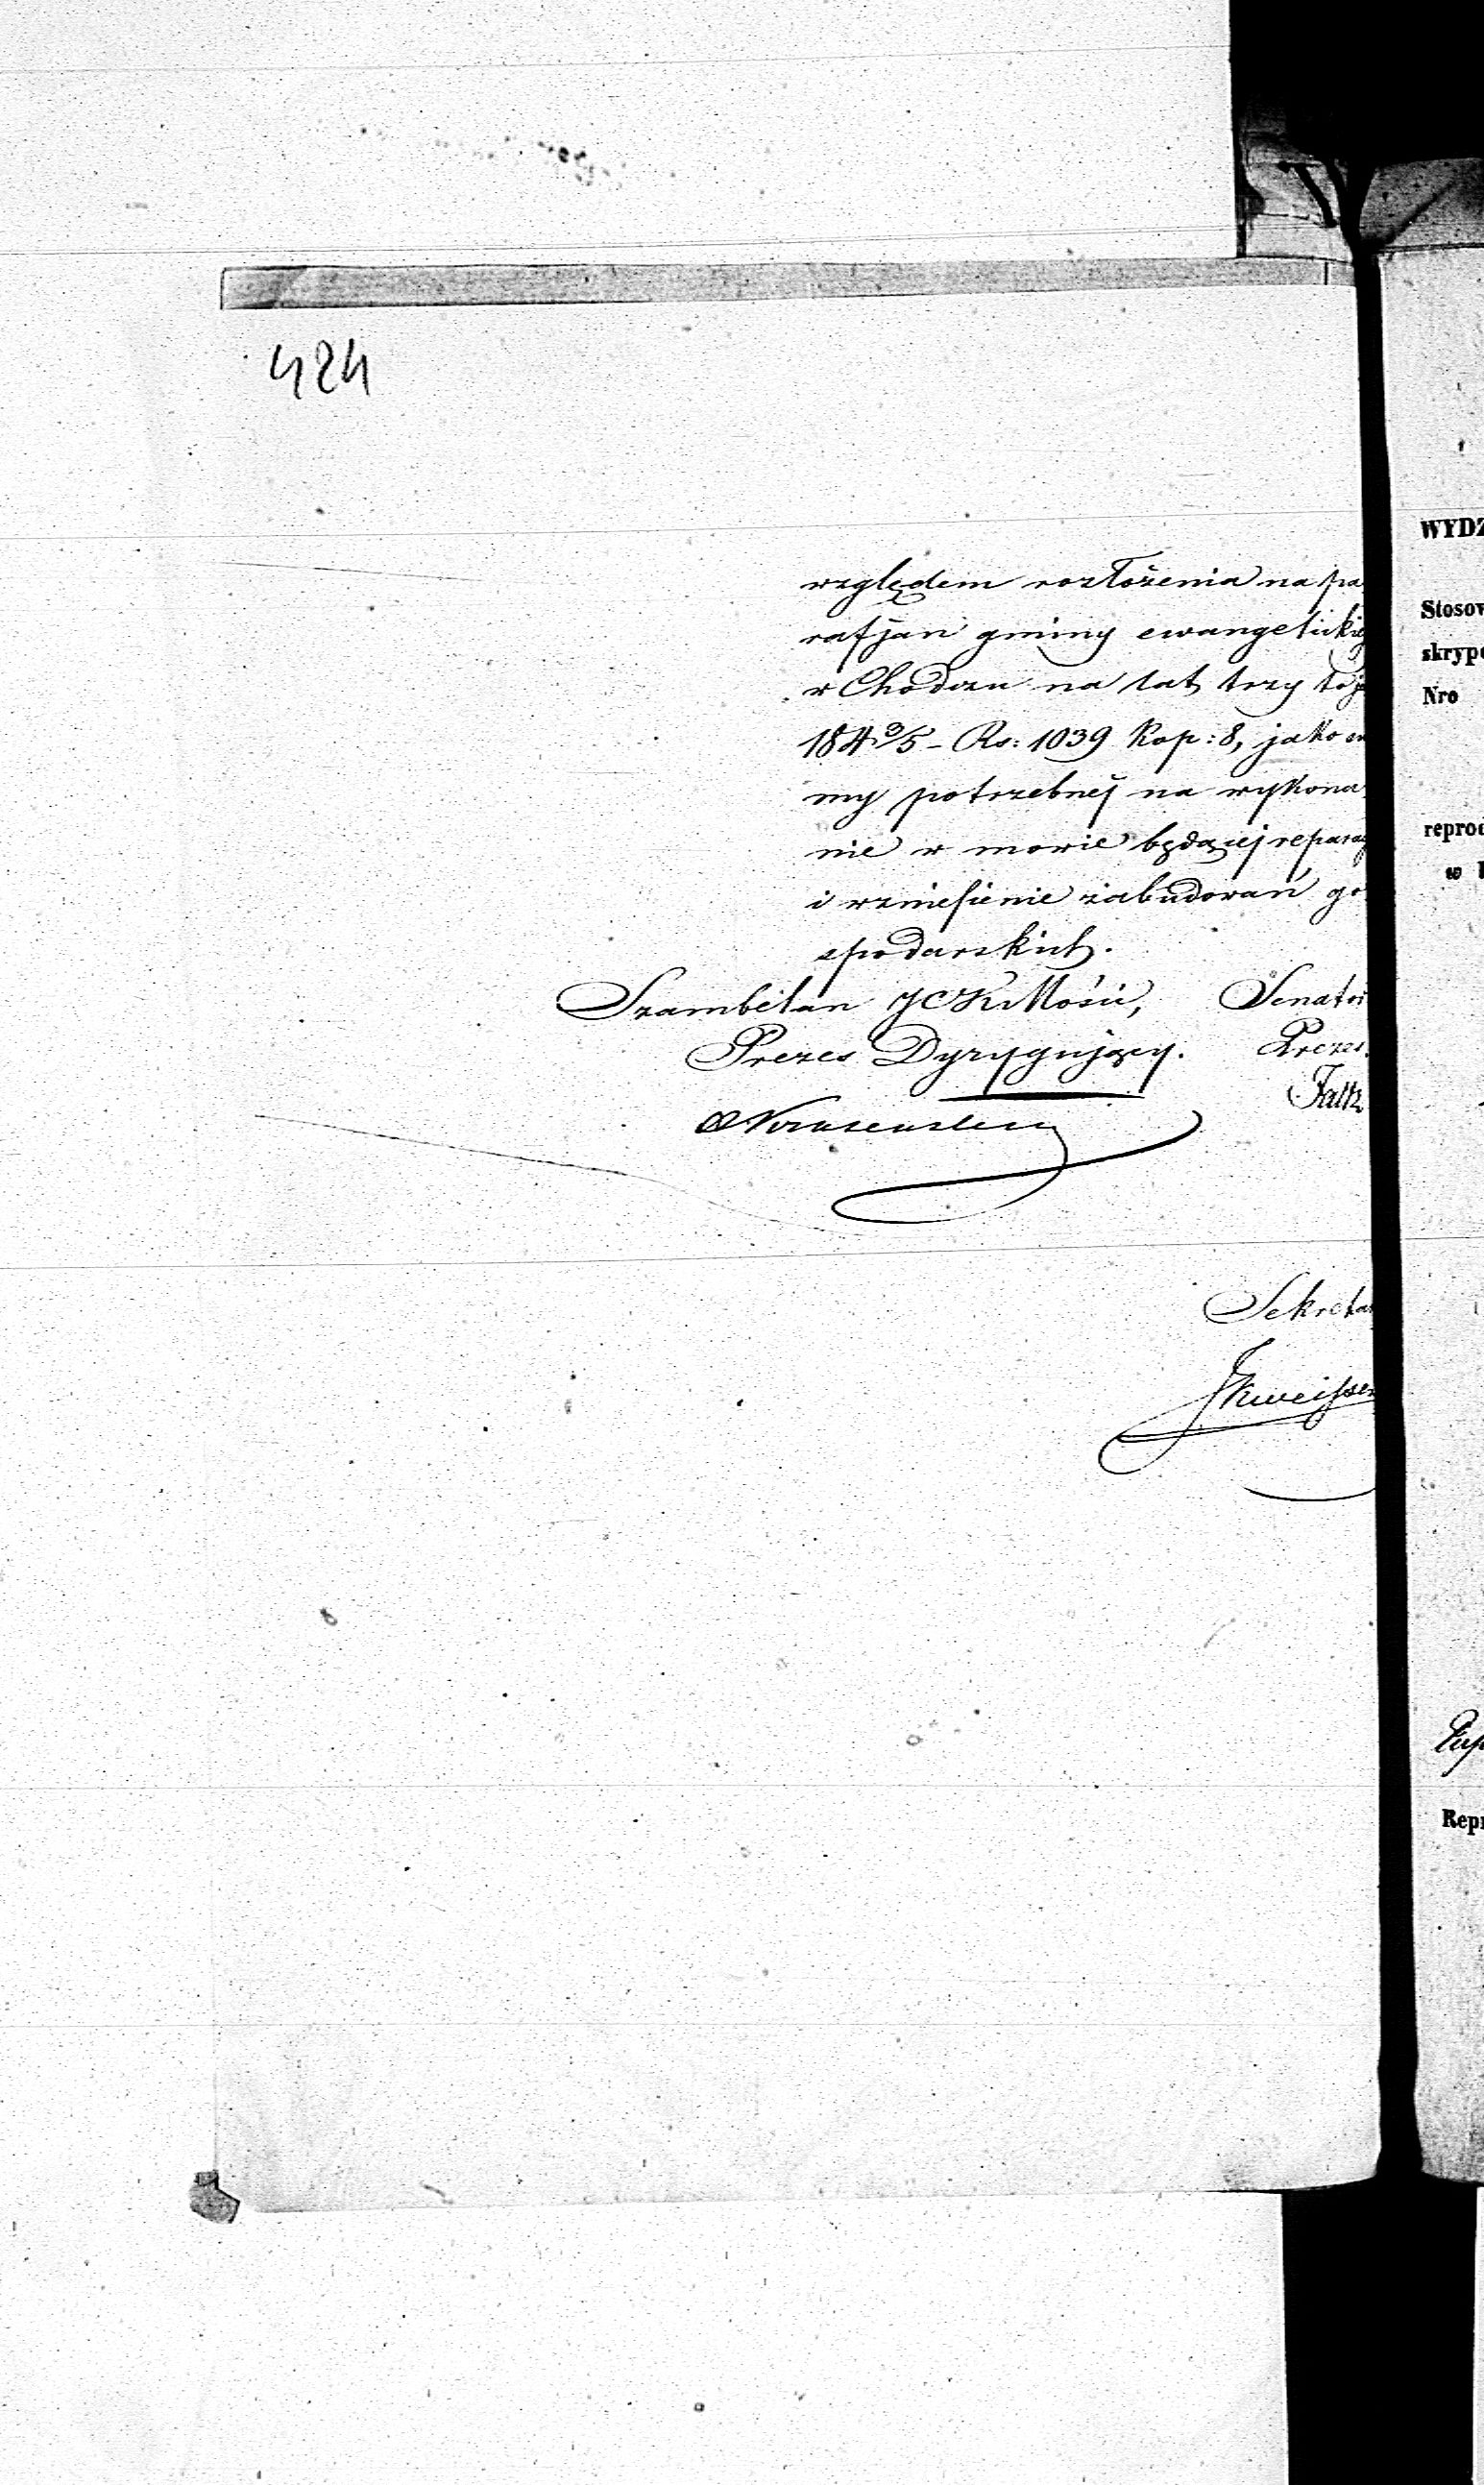 424
względem rozłożenia na pa
rafjan gminy ewangelickiej
w Chodczu na lat trzy to je
184 3/5 - Rs: 1039 Kop: 8, jako su
my potrzebnej na wykona
nie w mowie będącej reparac
i wzniesienie zabudowań go
spodarskich.
Szambelan JCKMości, Senator
Prezes Dyrygujący. Prezes
Falz
Sekretar
WYDZ
Stosow
skrype
Nro
reprod
w
Rep